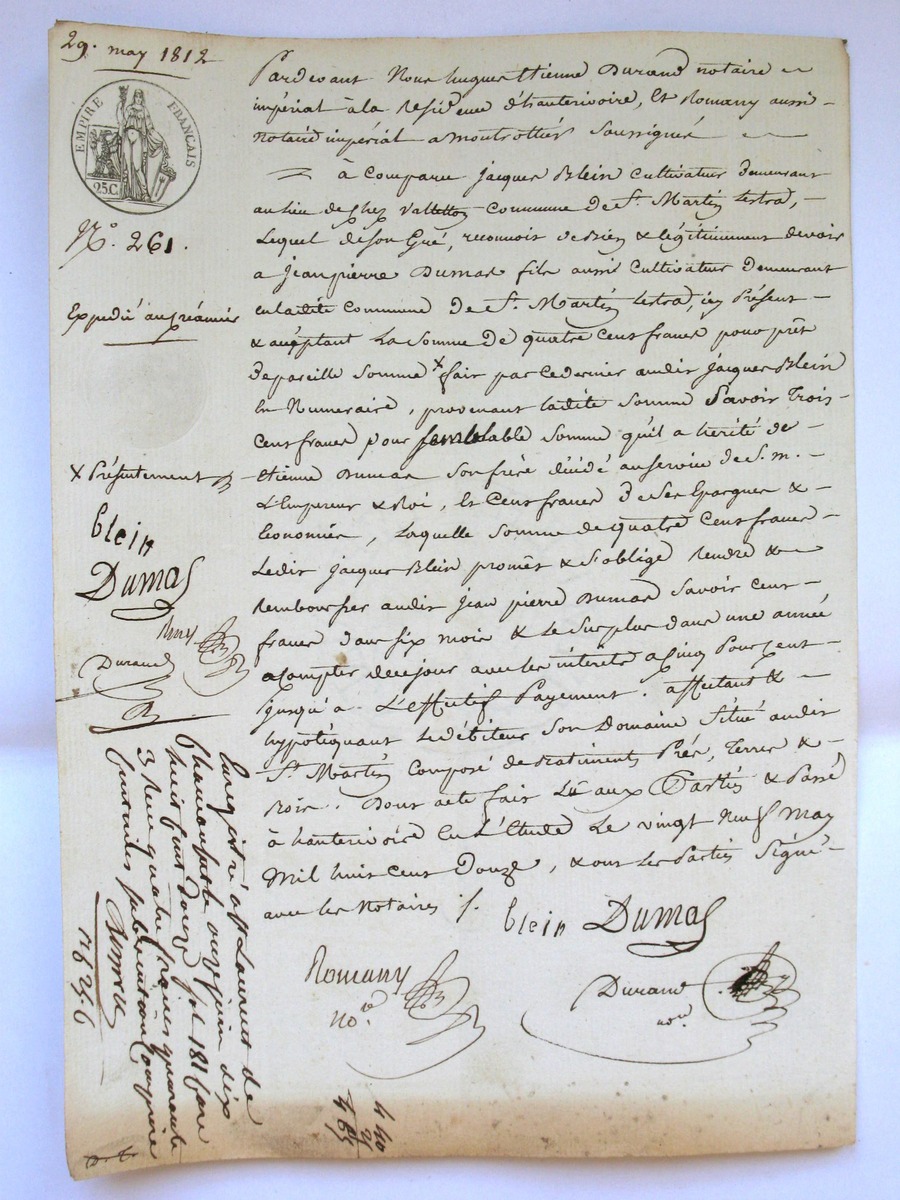 29. may 1812
EMPIRE FRANÇAIS
25.C.
N.º 261.
Expédié au créancier
Pardevant Nous hugues Etienne Durand notaire
impérial à la residence d'hauterivoire, Et Romany aussi
notaire impérial a Montrottier Soussignés
à Comparu Jacques Blein Cultivateur Demeurant
au lieu de chez Valletton Commune De St. Martin Lestra,
Lequel de son Gré, reconnoit de bien & légitimement devoir
a Jean pierre Dumas fils aussi Cultivateur Demeurant
en ladite Commune De St. Martin Lestra, icy Présent
& acceptant La Somme De quatre Cent francs pour prêt
De pareille Somme x fait par ce dernier audit Jacques Blein
En Numeraire, provenant ladite Somme Savoir Trois
Cent francs pour semblable Somme qu'il a hérité de
Etienne Dumas Son frère décédé au service de S. M.
L'Empereur & Roi, Et Cent francs De Ses Epargnes &
Economies, Laquelle Somme de quatre Cent francs
Ledit Jacques Blein promêt & S'oblige rendre &
rembourser audit Jean pierre Dumas Savoir Cent
francs dans Six mois & Le Surplus dans une année
a Compter de ce jour avec les intérêts a Cinq Pour Cent
Jusqu'a L'Effectif Payement. affectant &
hypotéquant Le débiteur Son Domaine Situé audit
St. Martin Composé de Batiments Prés, Terres &
Bois. Dont acte fait Lû aux Parties & Passé
à hauterivoire En L'Etude Le vingt Neuf May
Mil huit Cent Douze, & ont Les Parties Signé
avec les Notaires ./.
x Présentement
blein
Dumas
Rmy
Durand
blein Dumas
Romany
no.re
Durand
nore
Enregistré à St Laurent de
Chamousset le onze juin dix
huit cent douze, fol. 181 Care
3 Reçu quatre francs quarante
centimes subvention Comprise
4 40